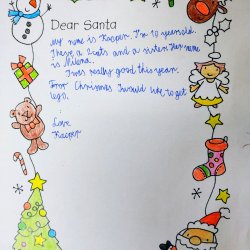 Dear Santa
My name is Kacper. I'm 10 years old.
There is a 2 cats and a sister. Her name
is Milena.
I was really good this year.
For Christmas I would like to get
lego.
Love
Kacper